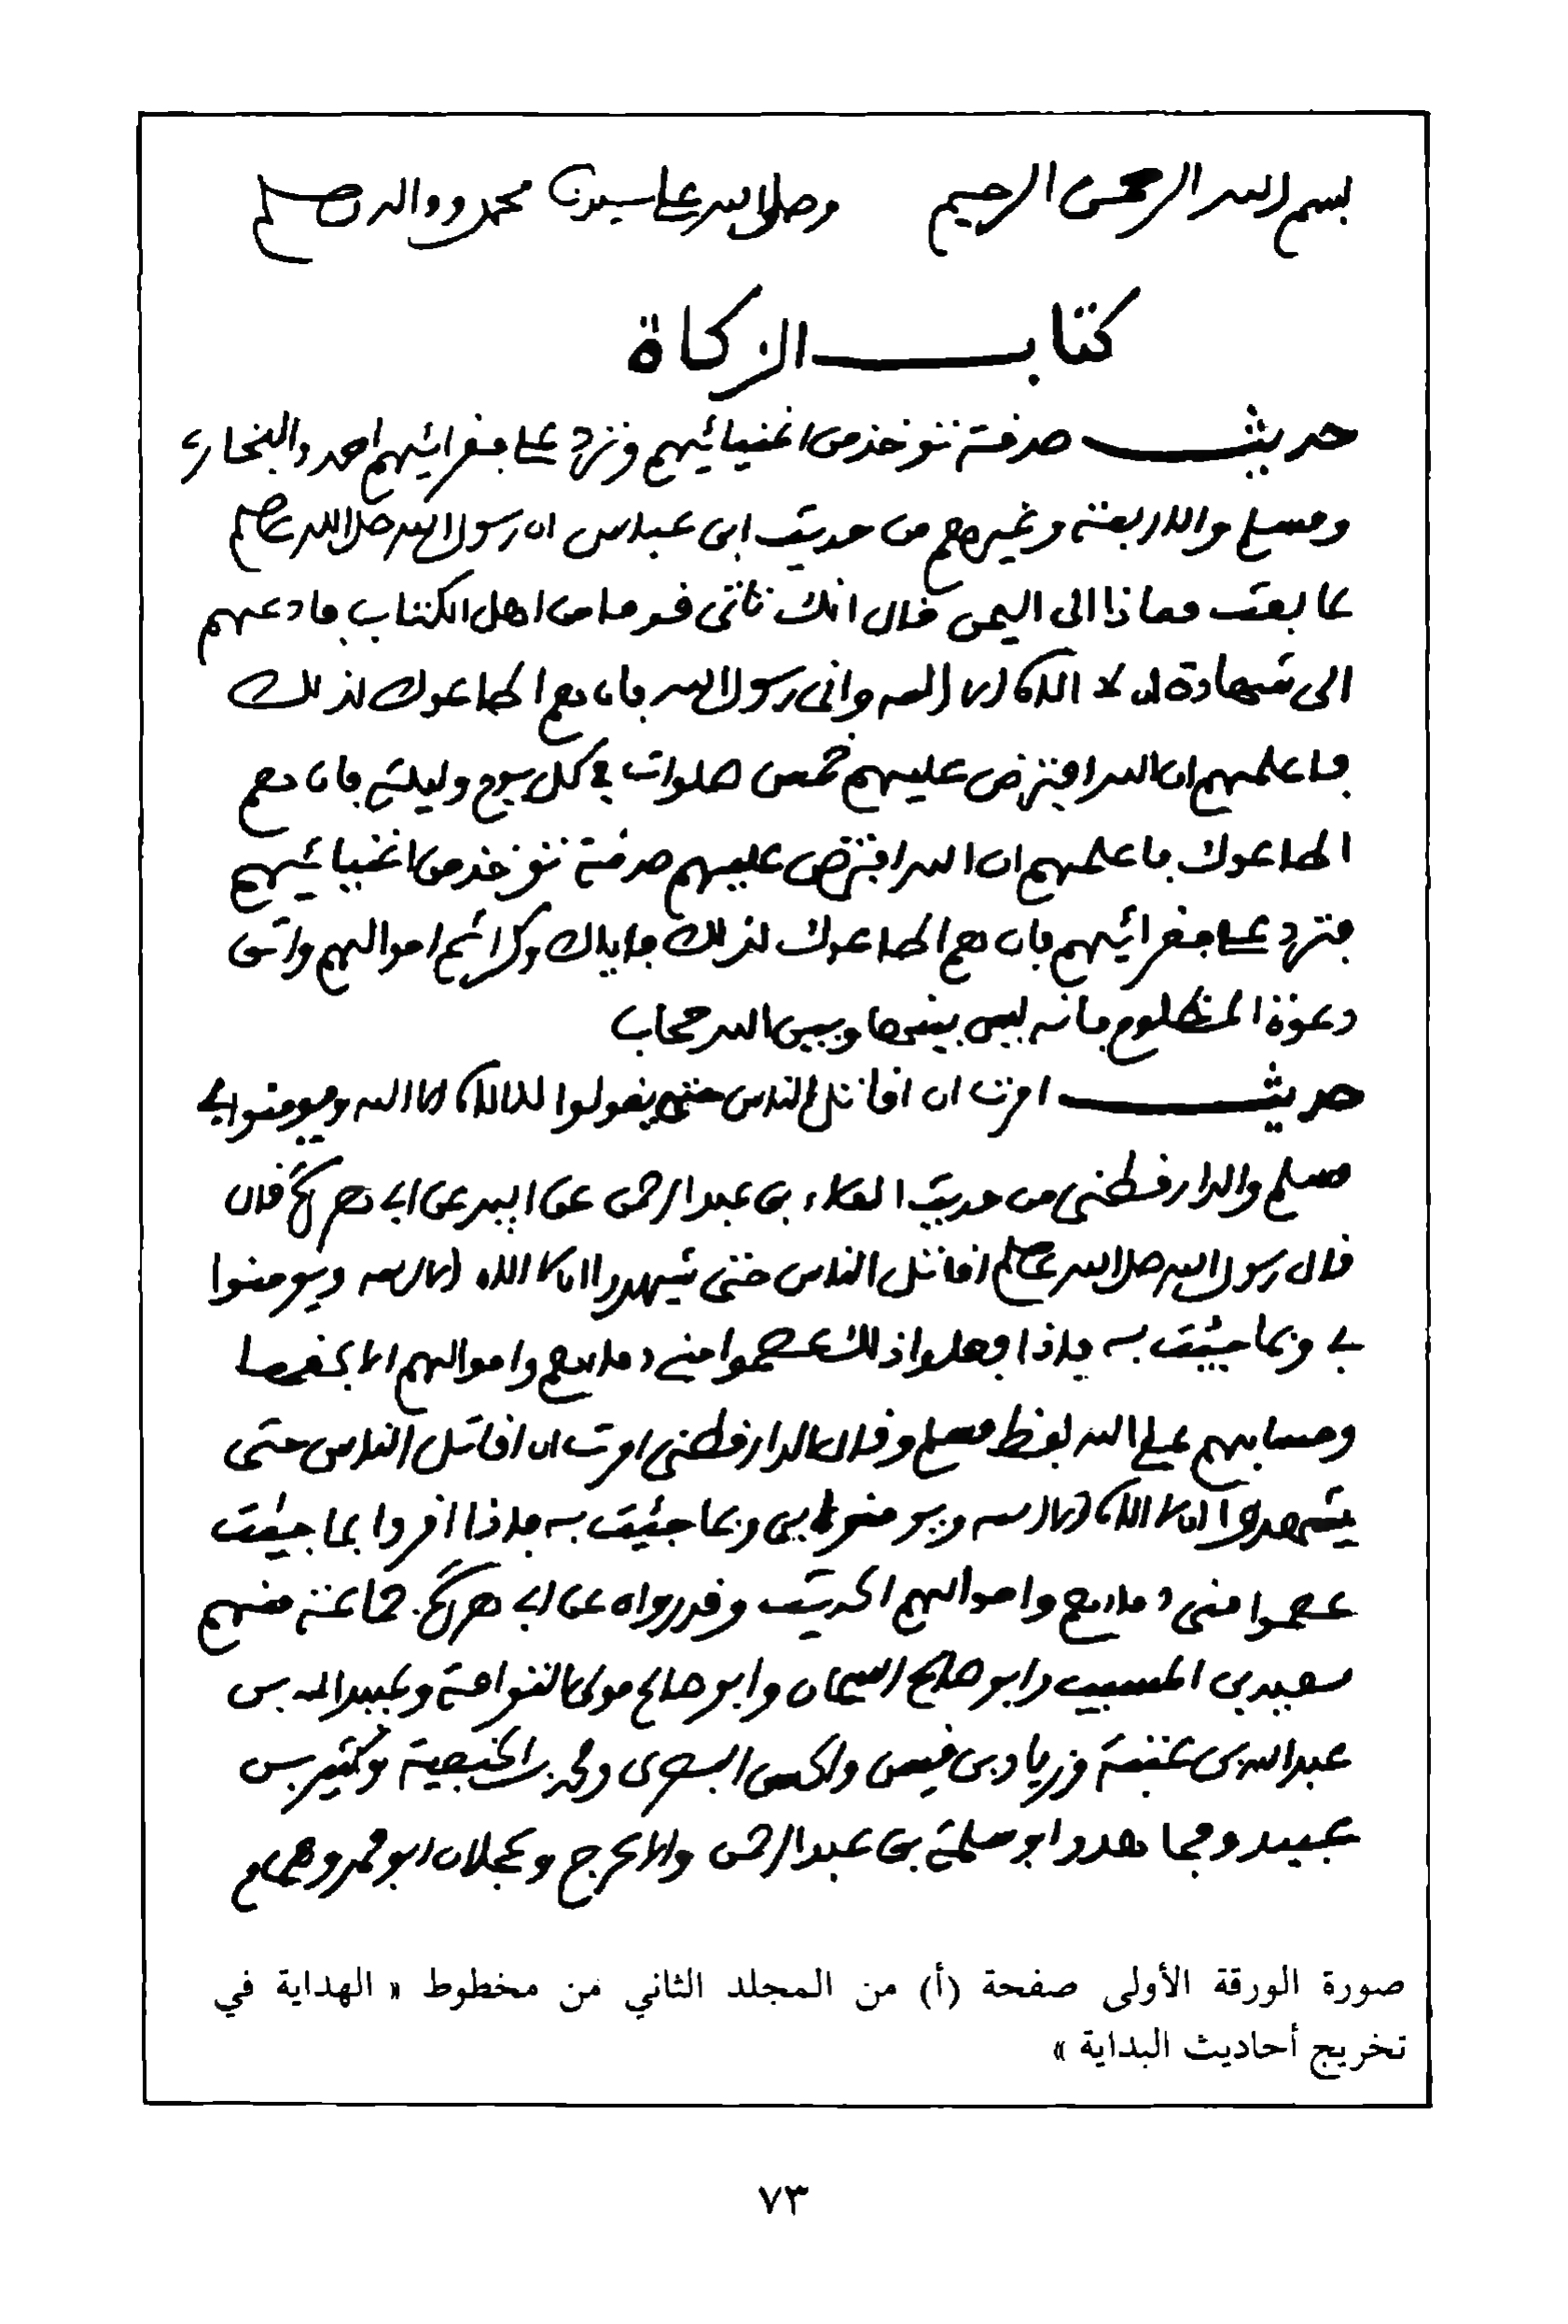 بسم الله الرحمن الرحيم وصلى الله على سيدنا محمد وواله وصلم
كتاب الزكاة
حديث صدقة تؤخذ من اغنيائيهم وترد على فقرائيهم احمد والبخاري
ومسلم والاربعة وغيرهم من حديث ابن عباس ان رسول الله صلى الله عليه وسلم
لما بعث معاذا الى اليمن قال انك تاتى قوما من اهل الكتاب فادعهم
الى شهادة ان لا الاه الا الله وانى رسول الله فان هم اطاعوك لذلك
فاعلمهم ان الله افترض عليهم خمس صلوات في كل يوم وليلة فان هم
اطاعوك فاعلمهم ان الله افترض عليهم صدقة تؤخذ من اغنيائيهم
فترد على فقرائيهم فان هم اطاعوك لذلك فاياك وكرائم اموالهم واتق
دعوة المظلوم فانه ليس بينها وبين الله حجاب
حديث امرت ان اقاتل الناس حتى يقولوا لا الاه الا الله ويومنوا بي
مسلم والدارقطنى من حديث العلاء بن عبد الرحمن عن ابيه عن ابي هريرة قال
قال رسول الله صلى الله عليه وسلم اقاتل الناس حتى يشهدوا ان لا الاه الا الله ويومنوا
بي وبما جيئت به فاذا فعلوا ذلك عصموا مني دماءهم واموالهم الا بحقها
وحسابهم على الله لفظ مسلم وقال الدارقطنى امرت ان اقاتل الناس حتى
يشهدوا ان لا الاه الا الله ويومنوا بي وبما جئيت به فاذا اقروا بما جيئت
عصموا منى دماءهم واموالهم الحديث وقد رواه عن ابي هريرة جماعة منهم
سعيد بن المسيب وابو صالح السمان وابو صالح مولى التوامة وعبيد الله بن
عبد الله بن عتبة وزياد بن قيس والحسن البصرى و وكثير بن
عبيد ومجاهد وابو سلمة بن عبد الرحمن والاعرج وعجلان ابو محمد وهمام
صورة الورقة الأولى صفحة (أ) من المجلد الثاني من مخطوط « الهداية في
تخريج أحاديث البداية »
٧٣